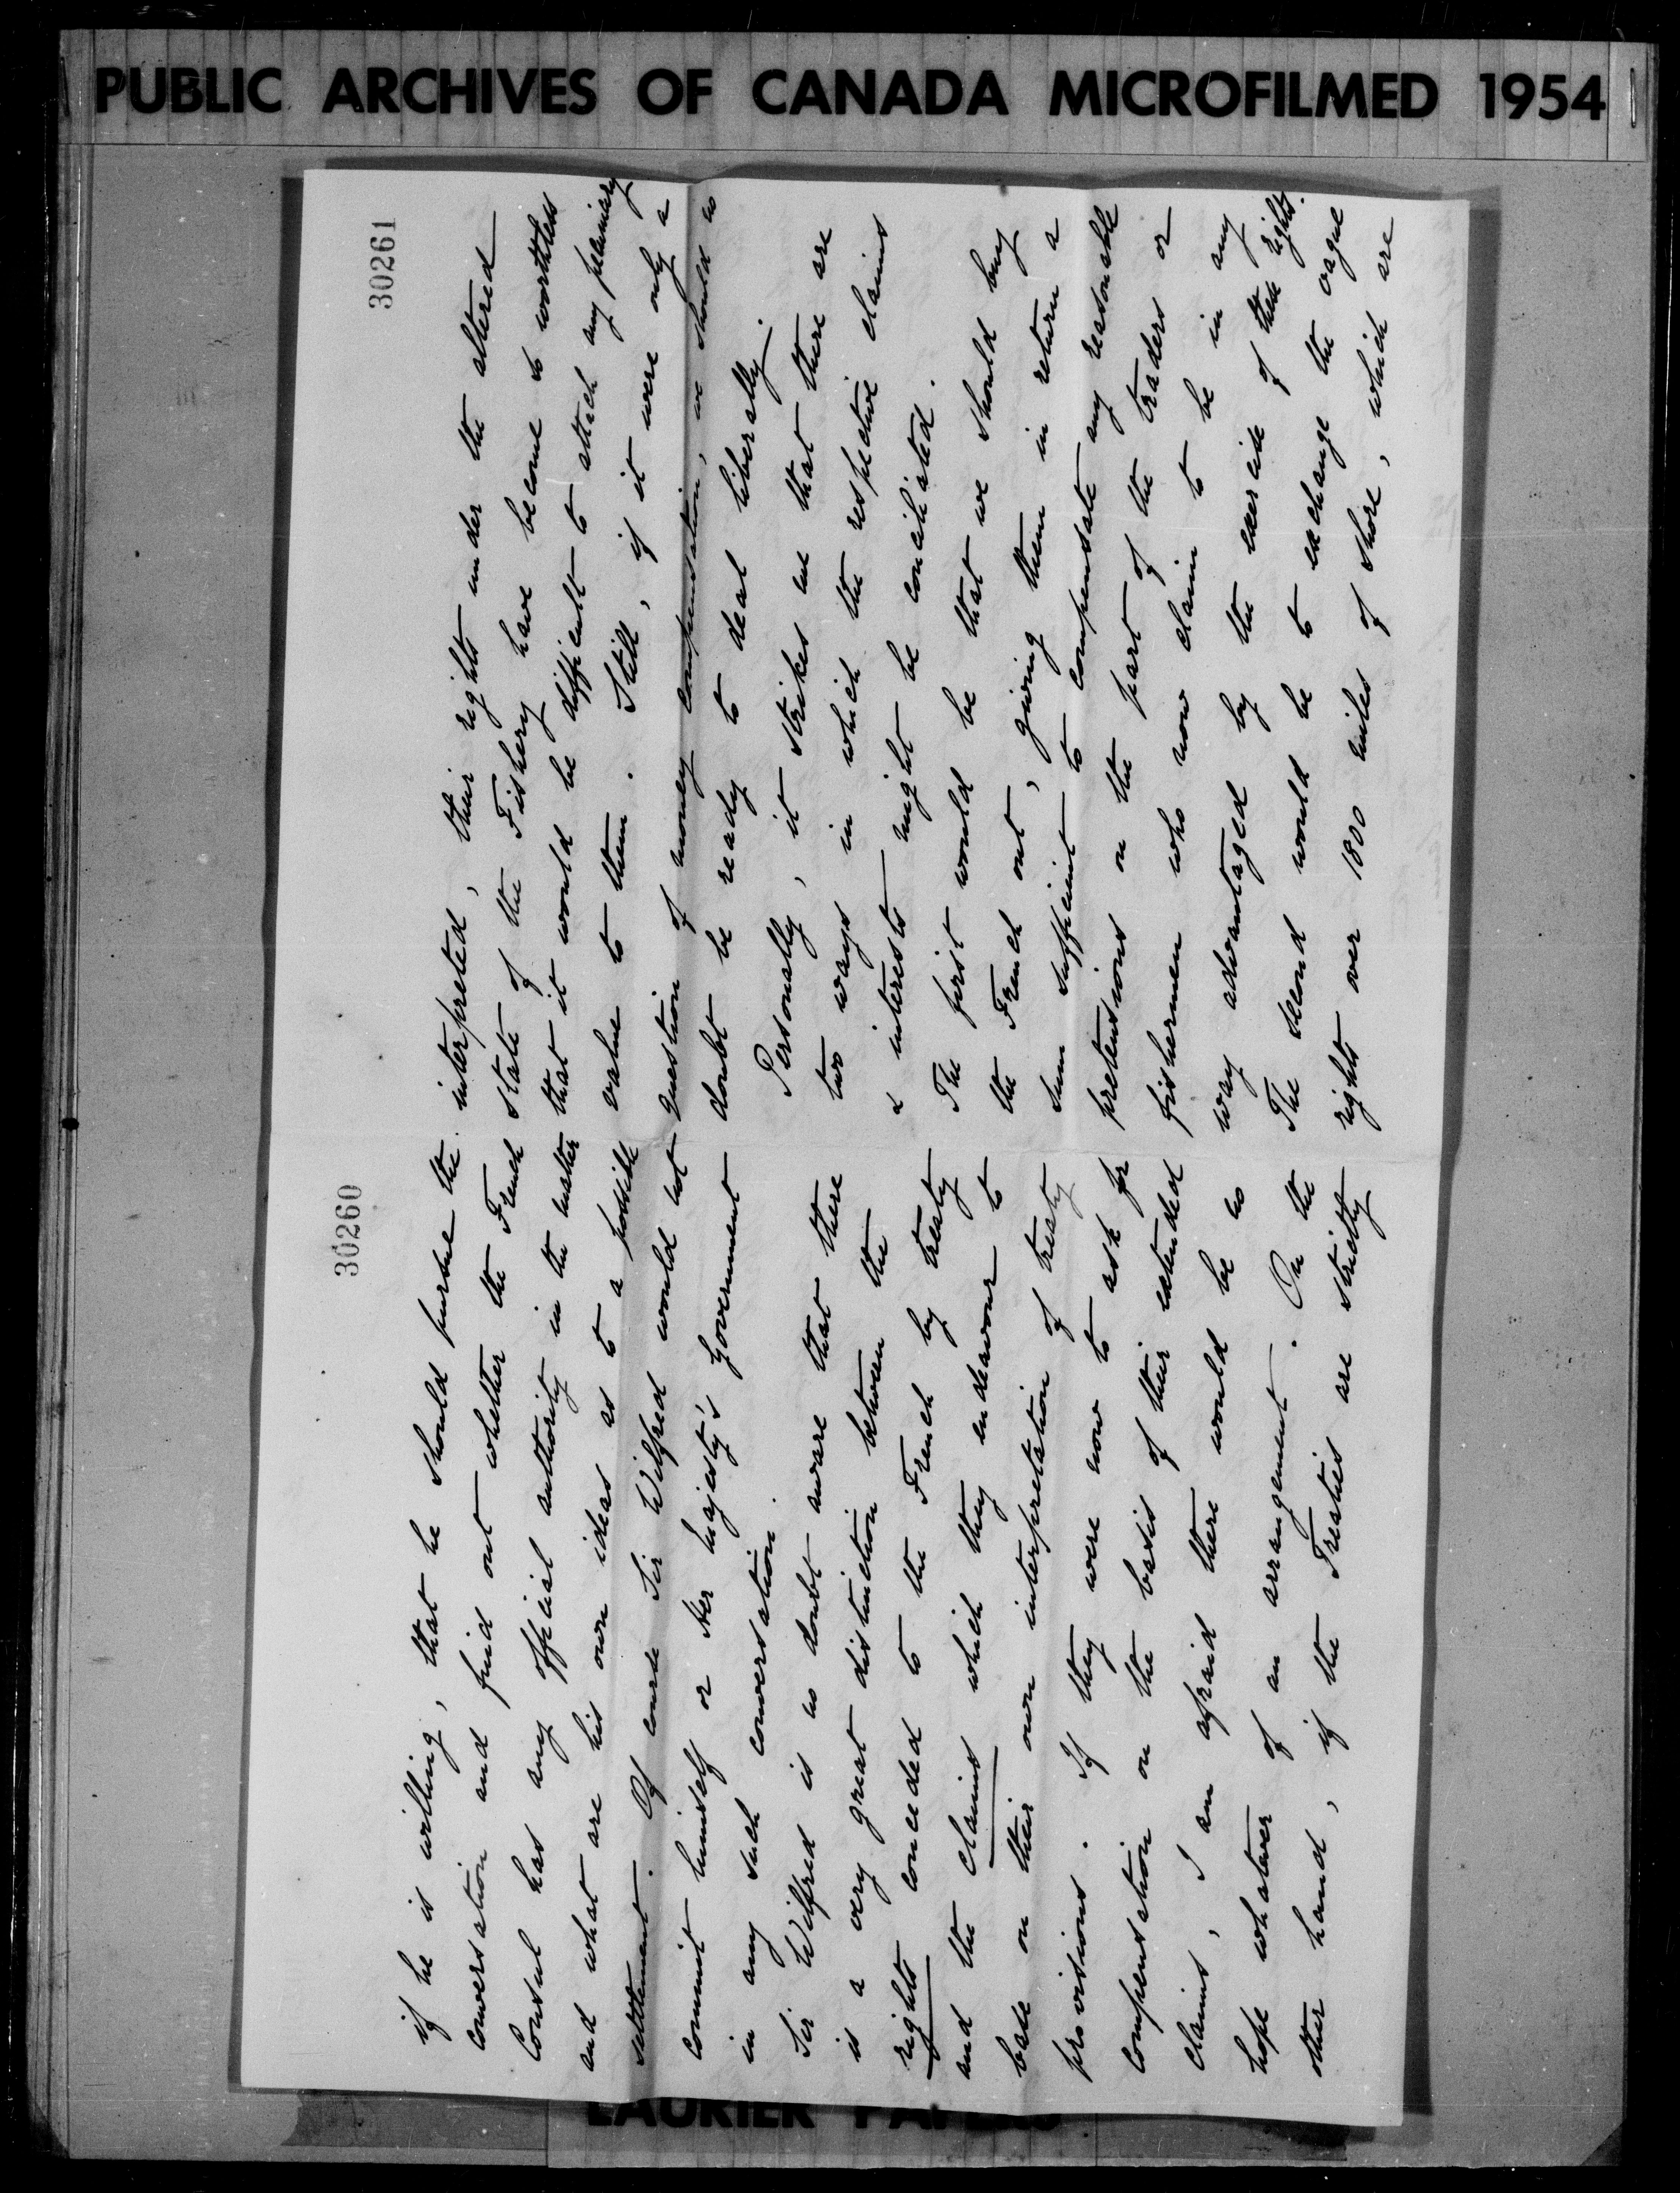 PUBLIC ARCHIVES OF CANADA MICROFILMED 1954
30260
if he is willing, that he should pursue the
conversation and find out whether the French
Consul has any official authority in the matter
and what are his own ideas as to a possible
settlement. Of course Sir Wilfred would not
commit himself or Her Majesty's Government
in any such conversation.
Sir Wilfred is no doubt aware that there
is a very great distinction between the
rights conceded to the French by treaty
and the claims which they endeavour to
base on their own interpretation of treaty
provisions. If they were now to ask for
compensation on the basis of their extended
claims, I am afraid there would be no
hope whatever of an arrangement. On the
other hand, if the Treaties are strictly
30261
interpreted, their rights under the altered
state of the Fishery have become so worthless
that it would be difficult to attach any pecuniary
value to them. Still, if it were only a
question of money compensation, we should no
doubt be ready to deal liberally.
Personally, it strikes me that there are
two ways in which the respective claims
& interests might be conciliated.
The first would be that we should buy
the French out, giving them in return a
sum sufficient to compensate any reasonable
pretensions on the part of the traders or
fishermen who now claim to be in any
way advantaged by the exercise of their rights.
The second would be to exchange the vague
rights over 1800 miles of shore, which are
LAURIER PAPERS